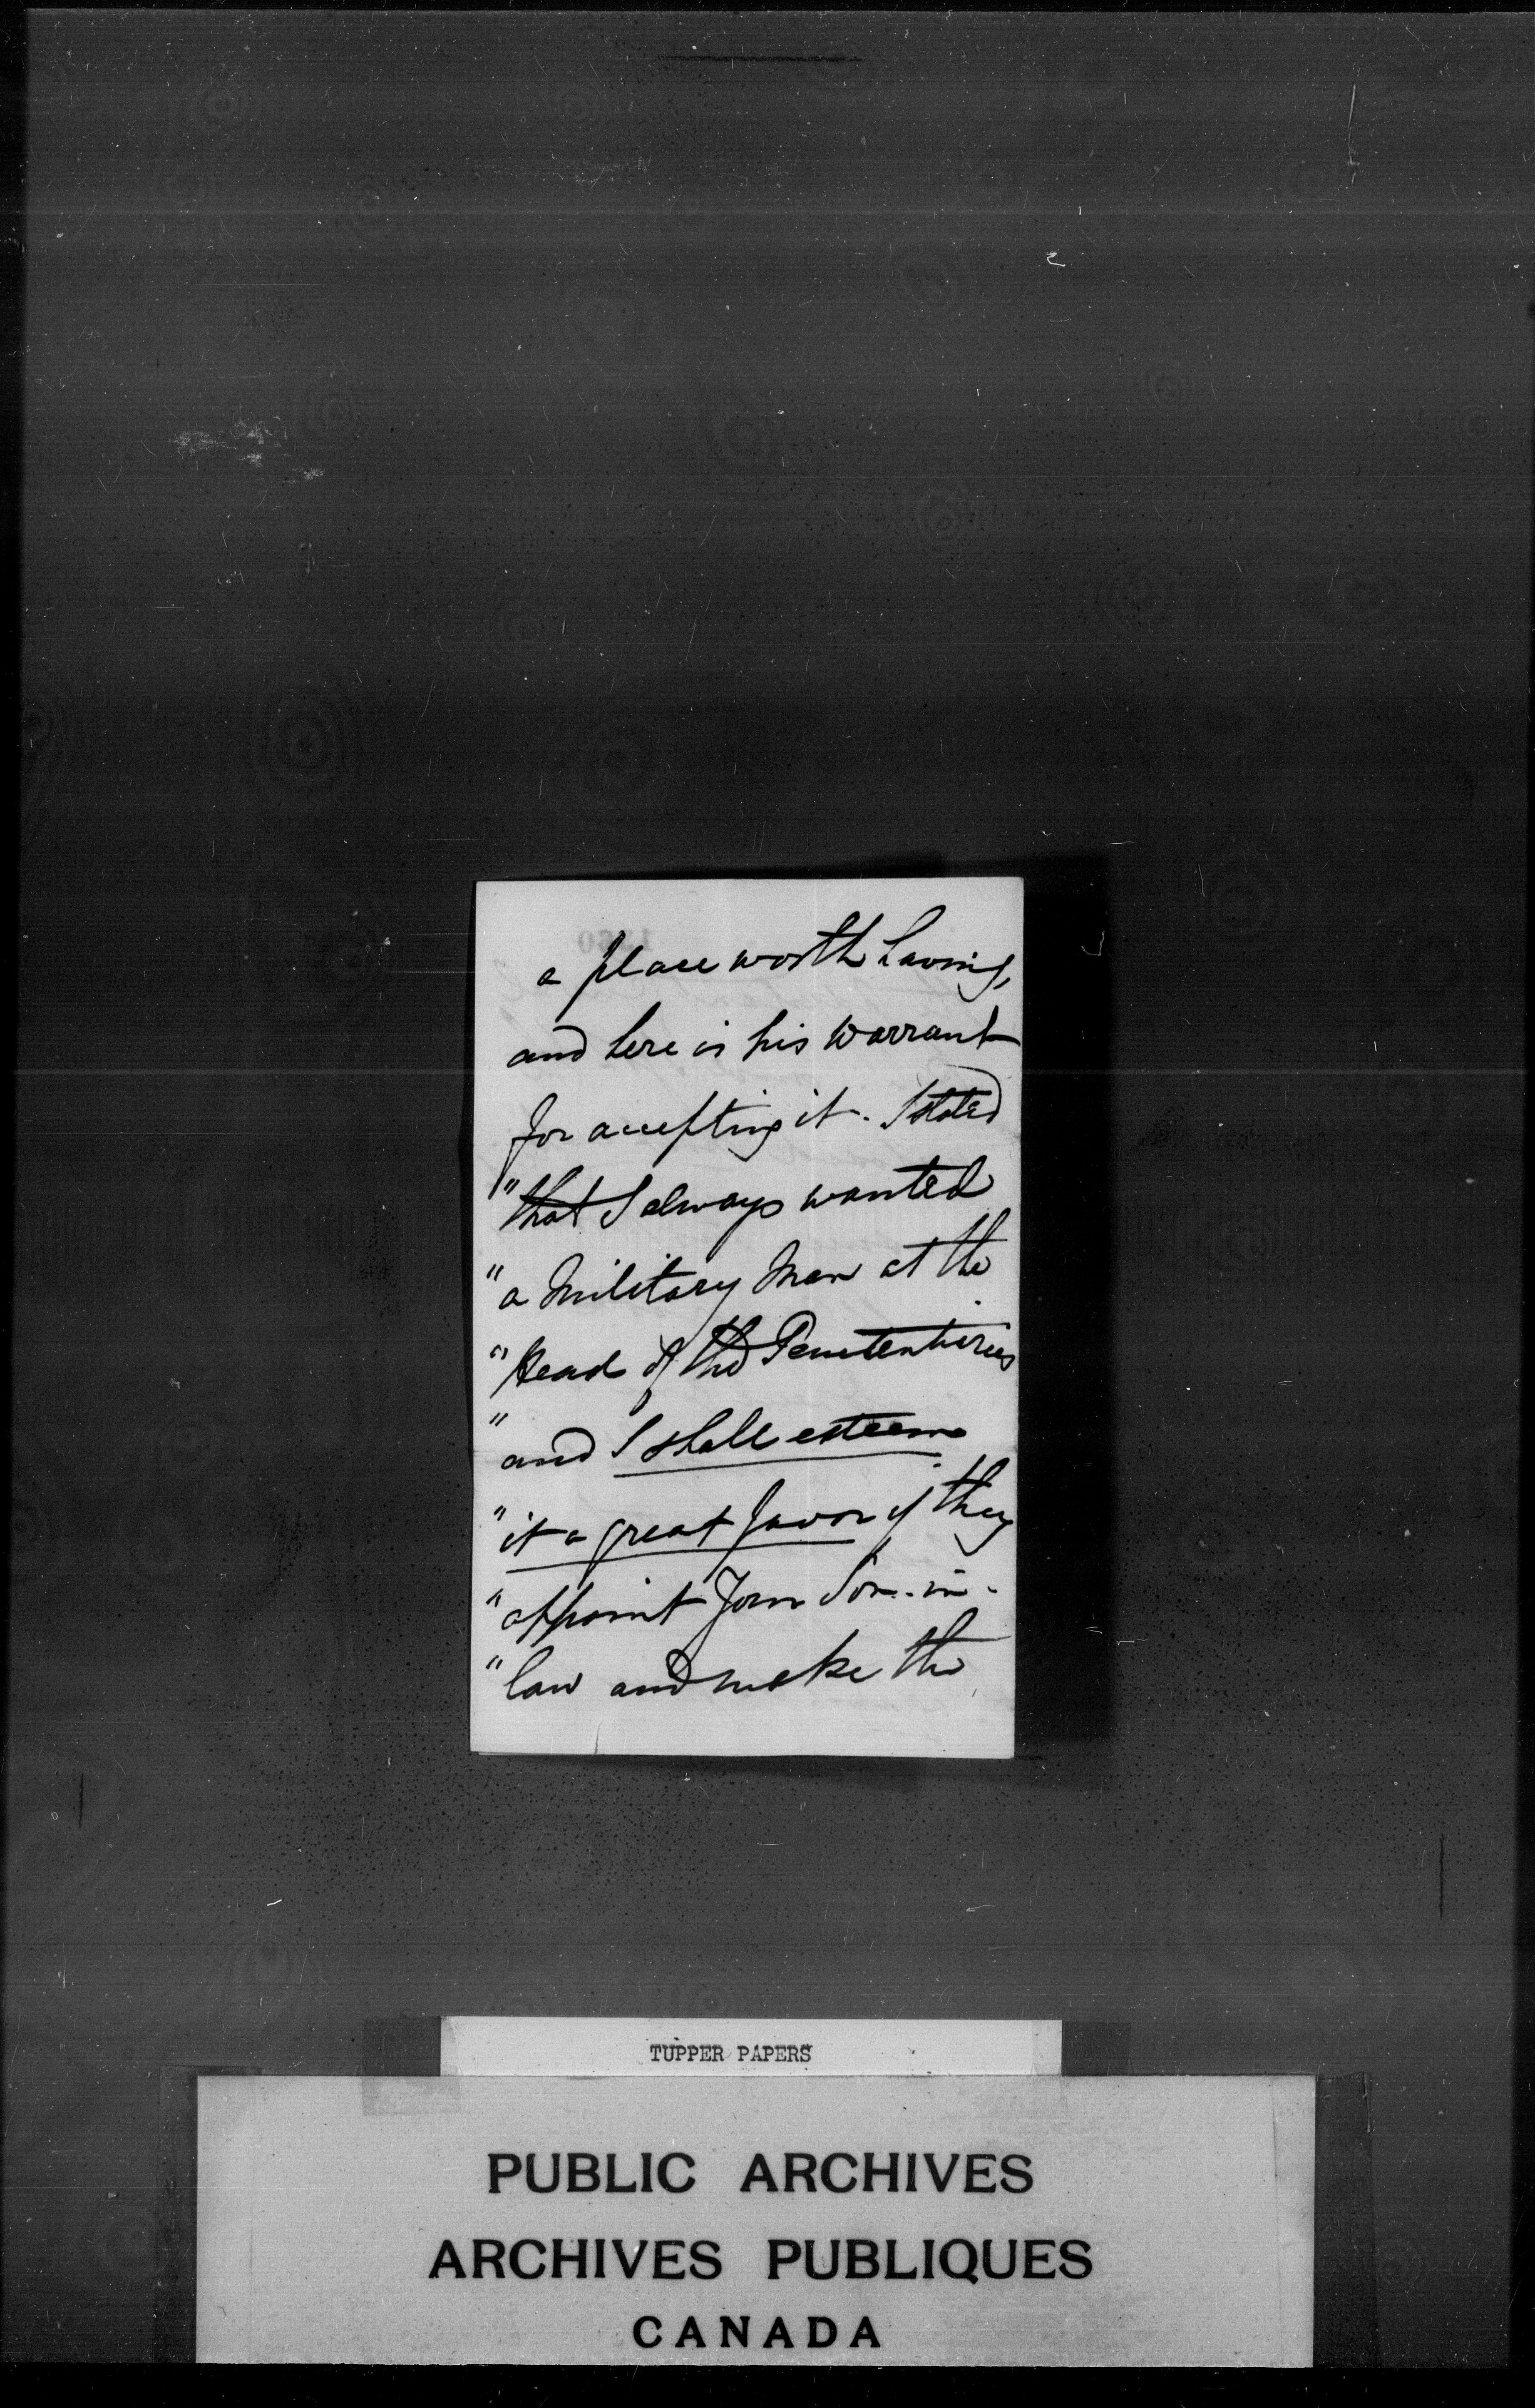 a place worth having,
and here is his warrant
for accepting it. I stated
"that I always wanted
"a military man at the
"Head of the Penetentiries
"and I shall esteem
"it a great favor if they
"appoint your Son-in-
"law and make the
TUPPER PAPERS
PUBLIC ARCHIVES
ARCHIVES PUBLIQUES
CANADA